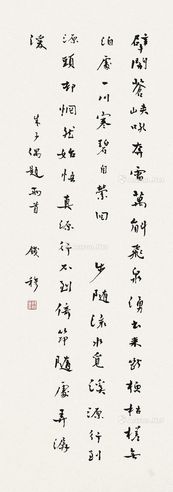 擘開蒼峽吼奔雷萬斛飛泉湧出來斷梗枯槎無
泊處一川寒碧自縈回 步隨流水覓溪源行到
源頭却惘然始悟真源行不到倚筇隨處弄潺
湲
朱子偶題兩首 錢穆